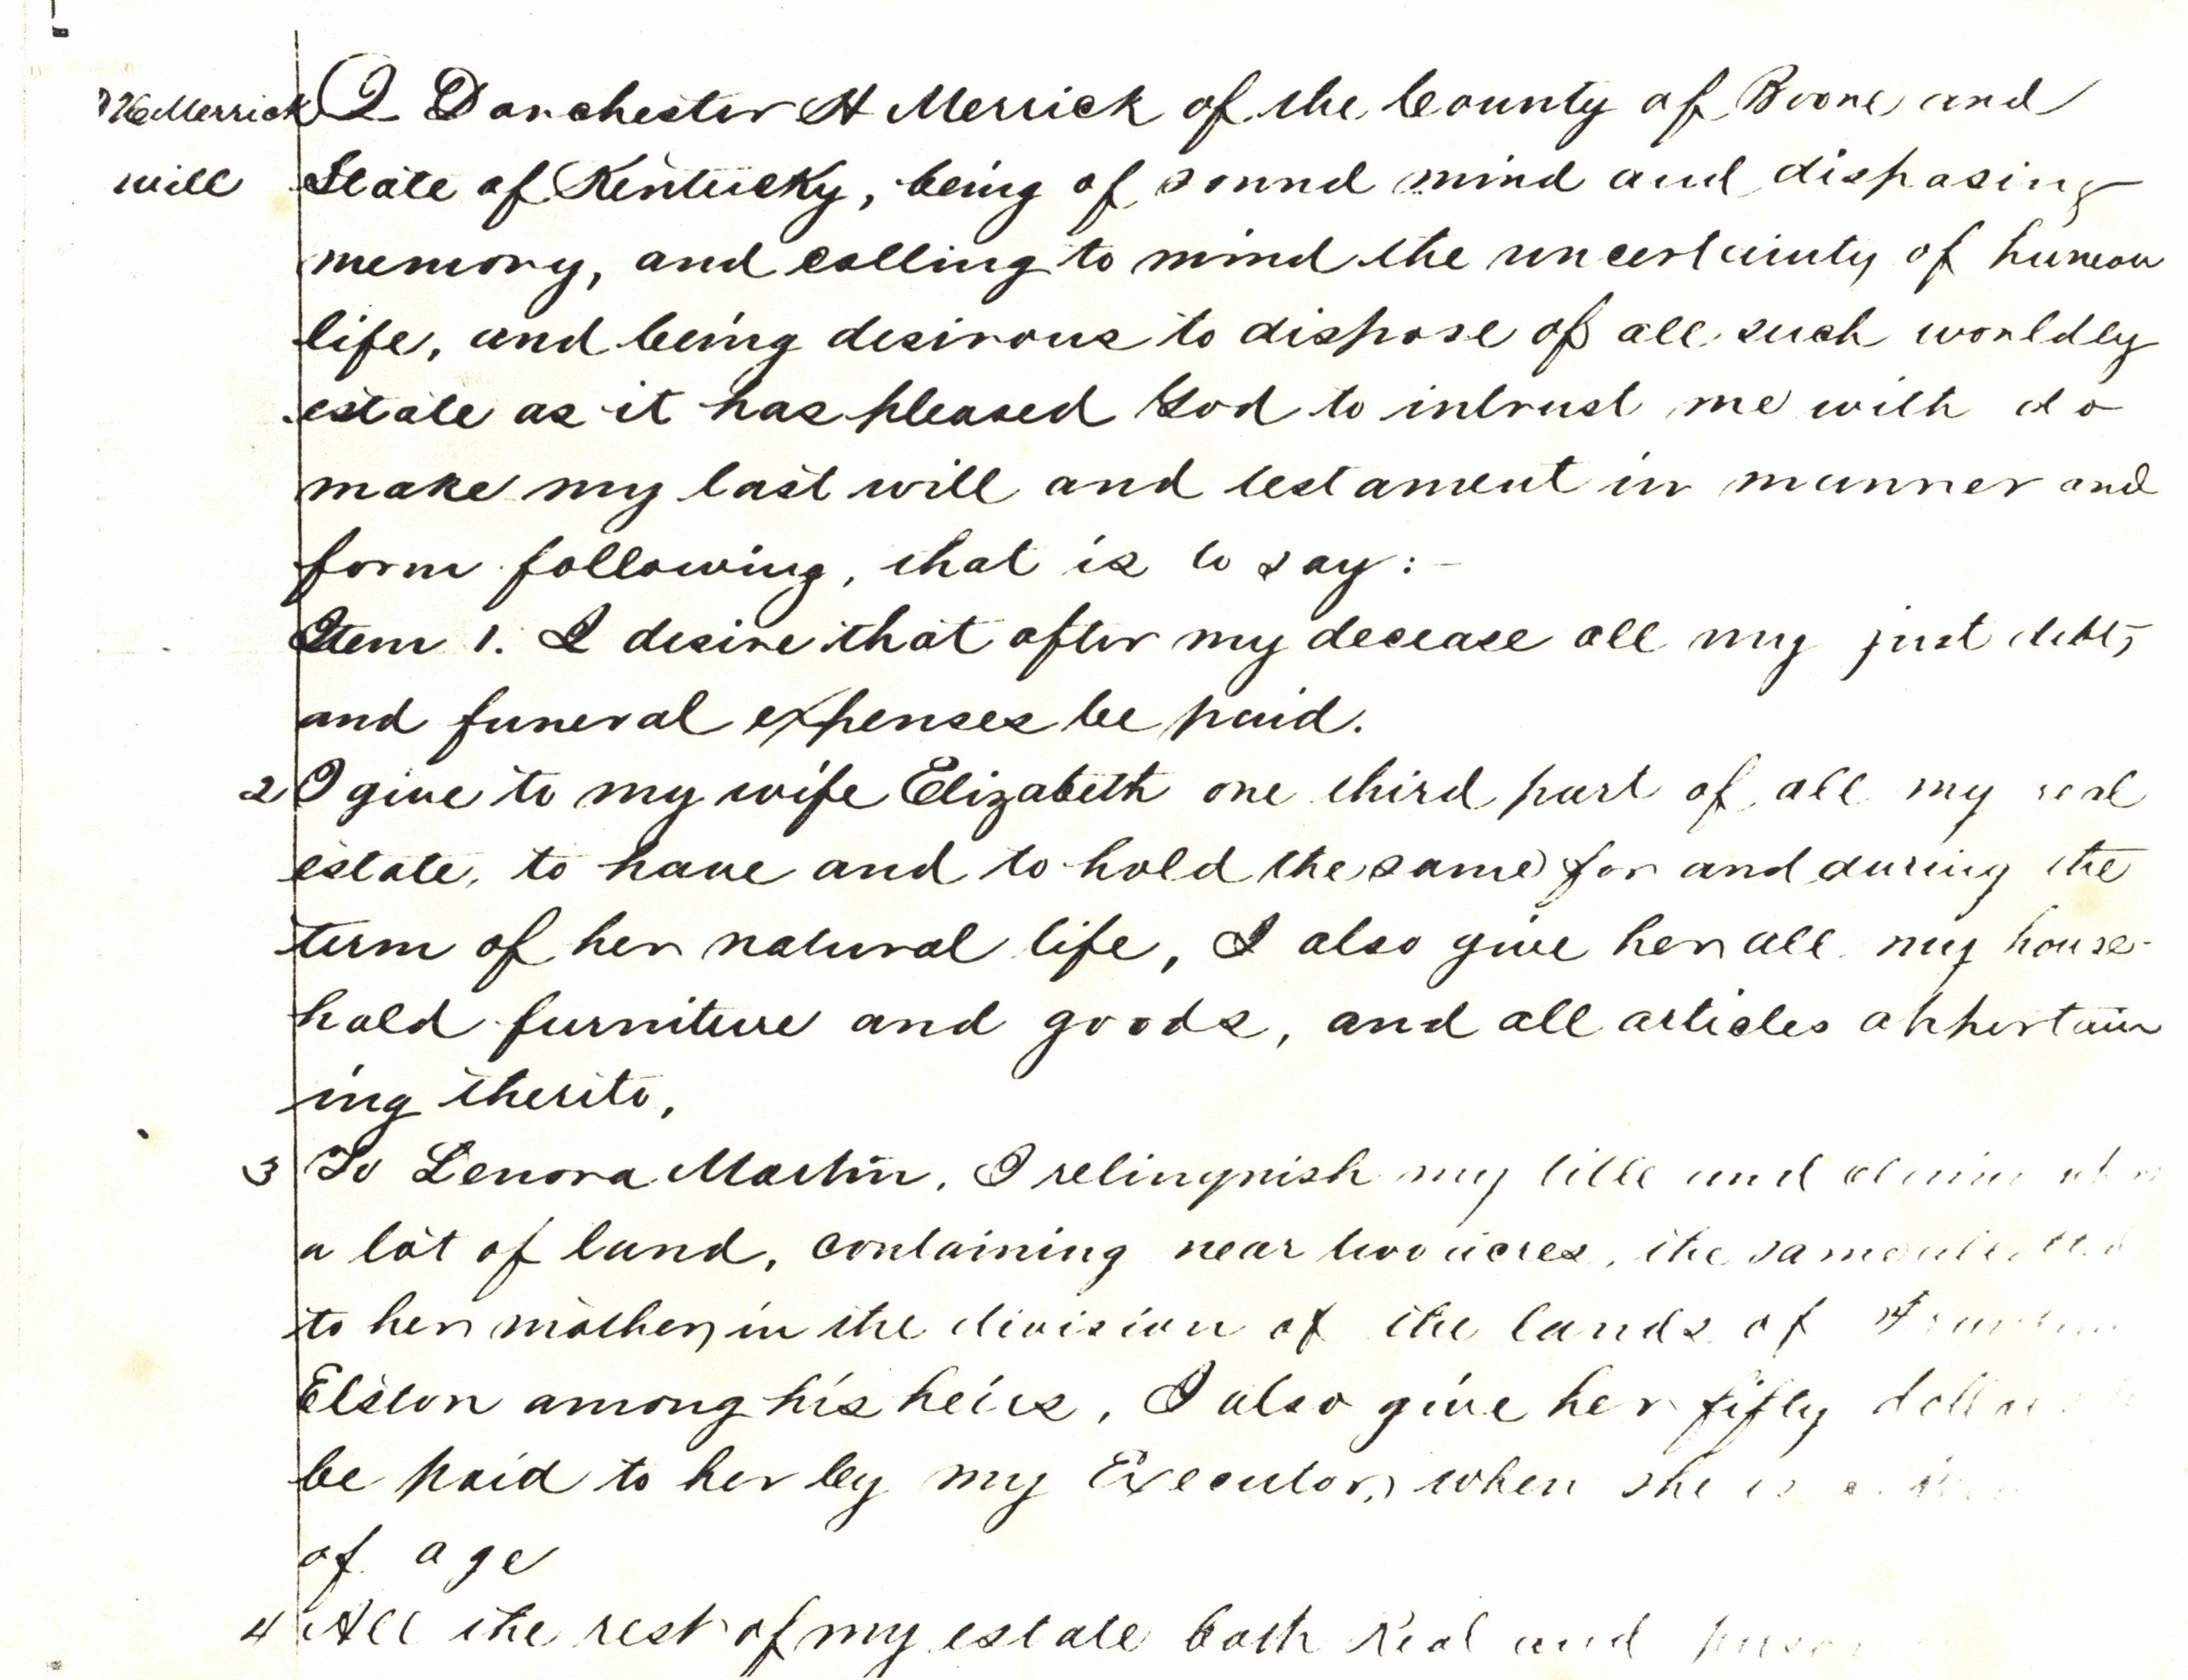 H Merrick
will
I Dorchester H Merrick of the County of Boone and
State of Kentucky, being of sound mind and disposing
memory, and calling to mind the uncertainty of human
life, and being desirous to dispose of all such worldly
estate as it has pleased God to intrust me with do
make my last will and testament in manner and
form following, that is to say:-
Item 1. I desire that after my decease all my just debts
and funeral expenses be paid.
2 I give to my wife Elizabeth one third part of all my real
estate, to have and to hold the same for and during the
term of her natural life, I also give her all my house-
hold furniture and goods, and all articles appertain
ing thereto,
3 To Lenora Martin, I relinquish my title and claim
a lot of land, containing near two acres, the same
to her mother in the division of the lands of
Elston among his heirs, I also give her fifty
be paid to her by my Executor, when she is
of age
4 All the rest of my estate both Real and